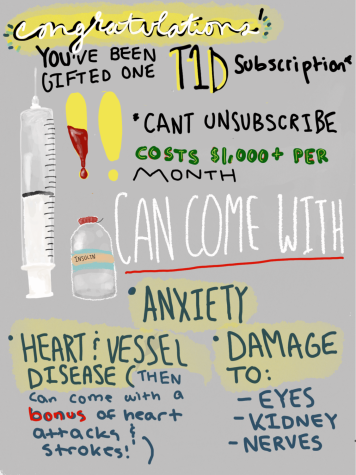 congratulations!
YOU'VE BEEN
GIFTED ONE T1D Subscription*
!!
*CANT UNSUBSCRIBE
COSTS $1,000+ PER
MONTH
CAN COME WITH
INSULIN
•ANXIETY
•HEART & VESSEL
DISEASE (THEN
can come with a
bonus of heart
attacks &
strokes!)
•DAMAGE
TO:
- EYES
- KIDNEY
- NERVES